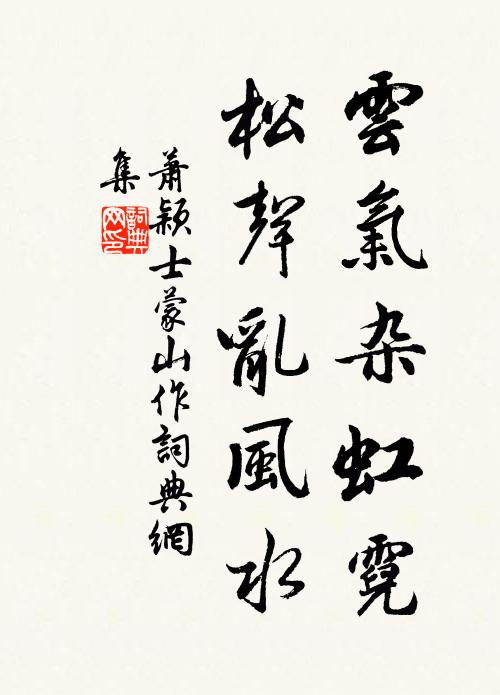 雲氣杂虹霓
松聲亂風水
萧颖士蒙山作詞典網
集
詞典
网印